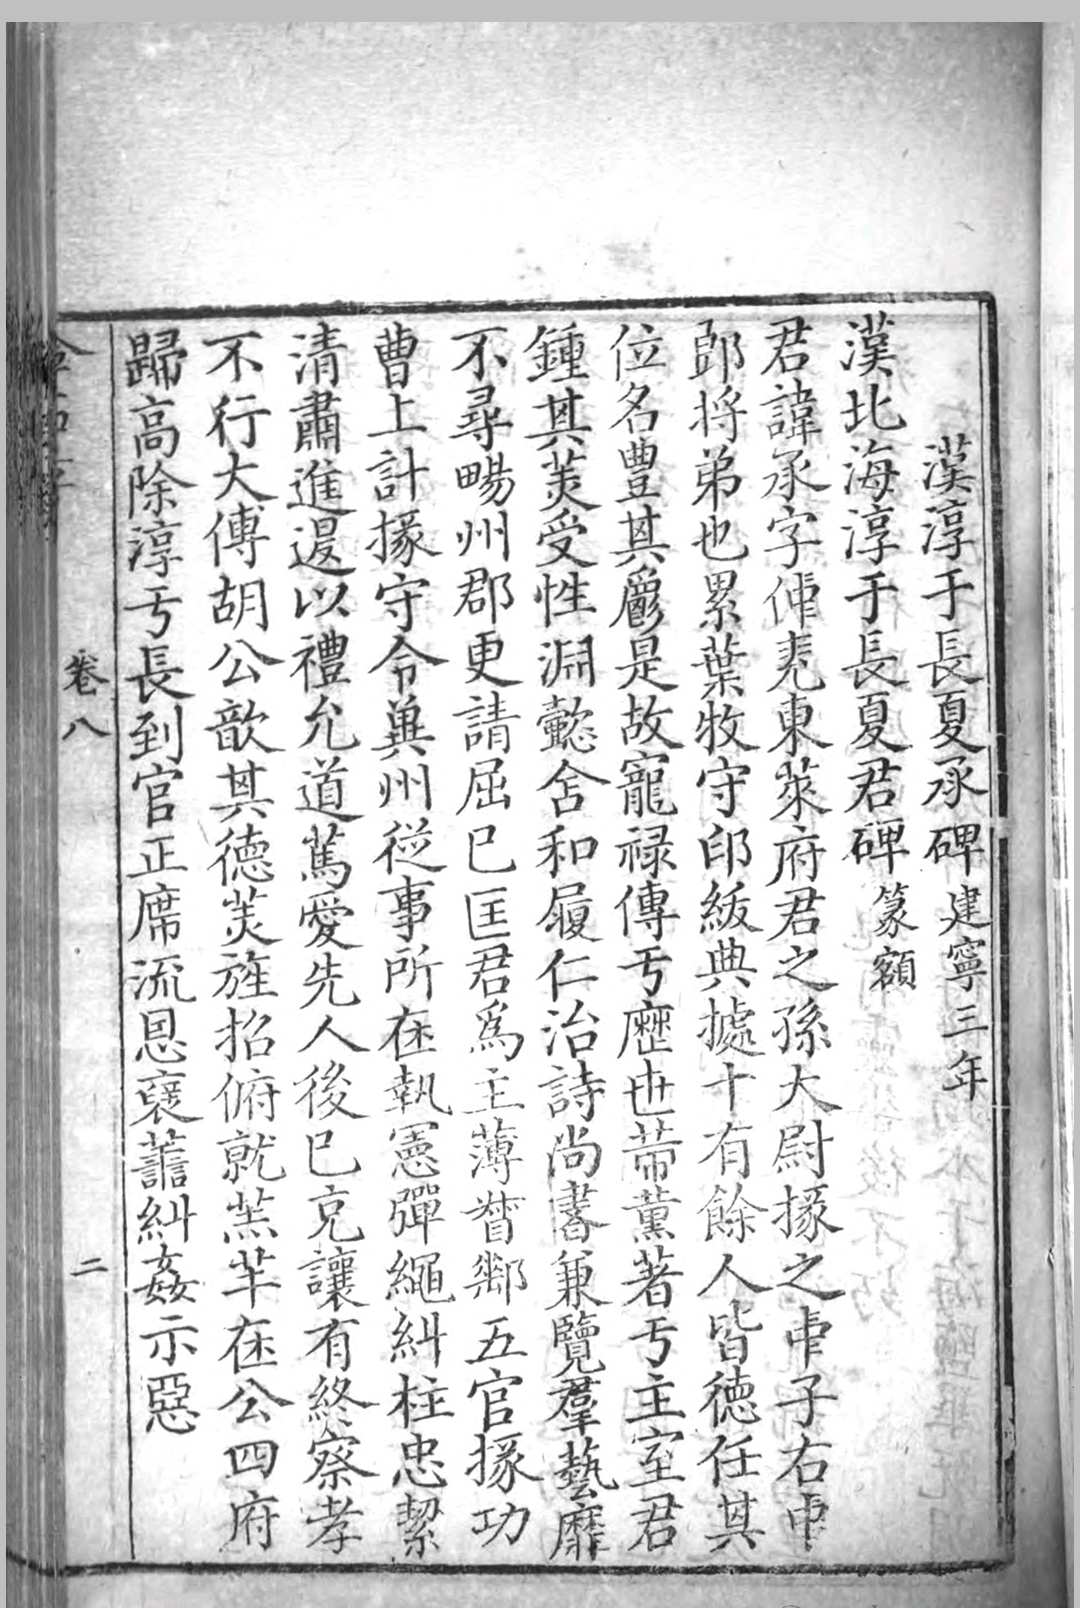 漢淳于長夏承碑 建寧三年
漢北海淳于長夏君碑 篆額
君諱承字仲兖東萊府君之孫大尉掾之中子右中
郎將弟也累葉牧守印紱典據十有餘人皆德任其
位名豊其爵是故寵禄傳亐歷世苖薰著亐主室君
鍾其美受性淵懿含和履仁治詩尚書兼覽羣藝靡
不尋暢州郡更請屈已匡君爲主薄督郵五官掾功
曹上計掾守令兾州従事所在執憲彈繩糾柱忠絜
清肅進退以禮允道篤愛先人後已克讓有終察孝
不行大傅胡公歆其德美旌招俯就羔羊在公四府
歸高除淳亐長到官正席流恩襃譱糾姦示惡
卷八
二